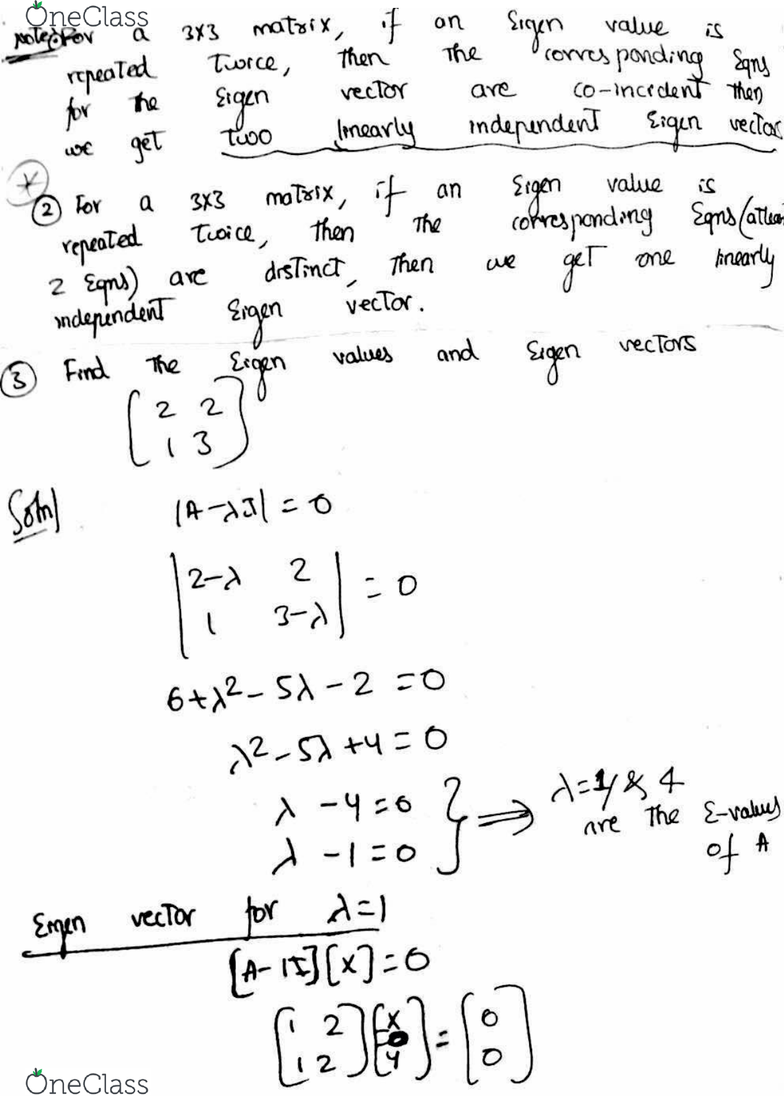 OneClass
Note: ① For a 3x3 matrix, if an Eigen value is
repeated twice, then the corresponding Eqns
for the Eigen vector are co-incident then
we get two linearly independent Eigen vector
② For a 3x3 matrix, if an Eigen value is
repeated twice, then the corresponding Eqns (atlea
2 Eqns) are distinct, then we get one linearly
independent Eigen vector.
③ Find the Eigen values and Eigen vectors
( 2 2
1 3 )
Soln)
|A-λI| = 0
| 2-λ 2
1 3-λ | = 0
6+λ²-5λ-2 = 0
λ²-5λ+4 = 0
λ-4=0 } ⟹ λ=1 & 4
λ-1=0 are the E-values
of A
Eigen vector for λ=1
[A-1I][X]=0
( 1 2 ) [ x = ( 0
1 2 ) y ] 0 )
OneClass